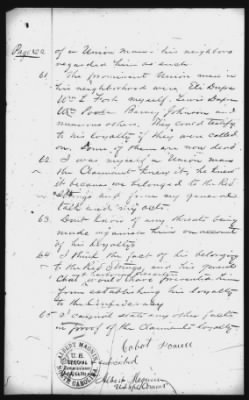 Page No 2
of a Union man - his neighbors
regarded him as such.
61. The prominent Union men in
his neighborhood were Eli
Wm L myself, Lewis
Wm Poole Barney Johnson and
numerous others. They could testify
to his loyalty if they were called
on. Some of them are now dead.
62. I was myself a Union man
the Claimant knew it, he knew
it because we belonged to the Red
Strings and from my general
talk and my acts.
63. Dont know of any threats being
made against him on account
of his loyalty.
64 I think the fact of his belonging
to the Red Strings, and his general
would have prevented him
from establishing his loyalty
to the Confederacy
65 I cannot state any other facts
in proof of the Claimants loyalty
Cabot
Albert
ALBERT
U.S.
NORTH CAROLINA